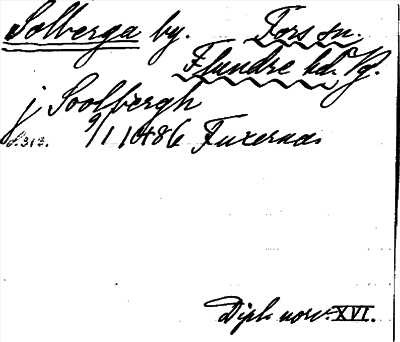 Solberga by. Fors sn.
Flundre hd. Vg.
j Soolbergh
s. 313. 9/1 1486 Fuxerna.
Dipl. norv. XVI.